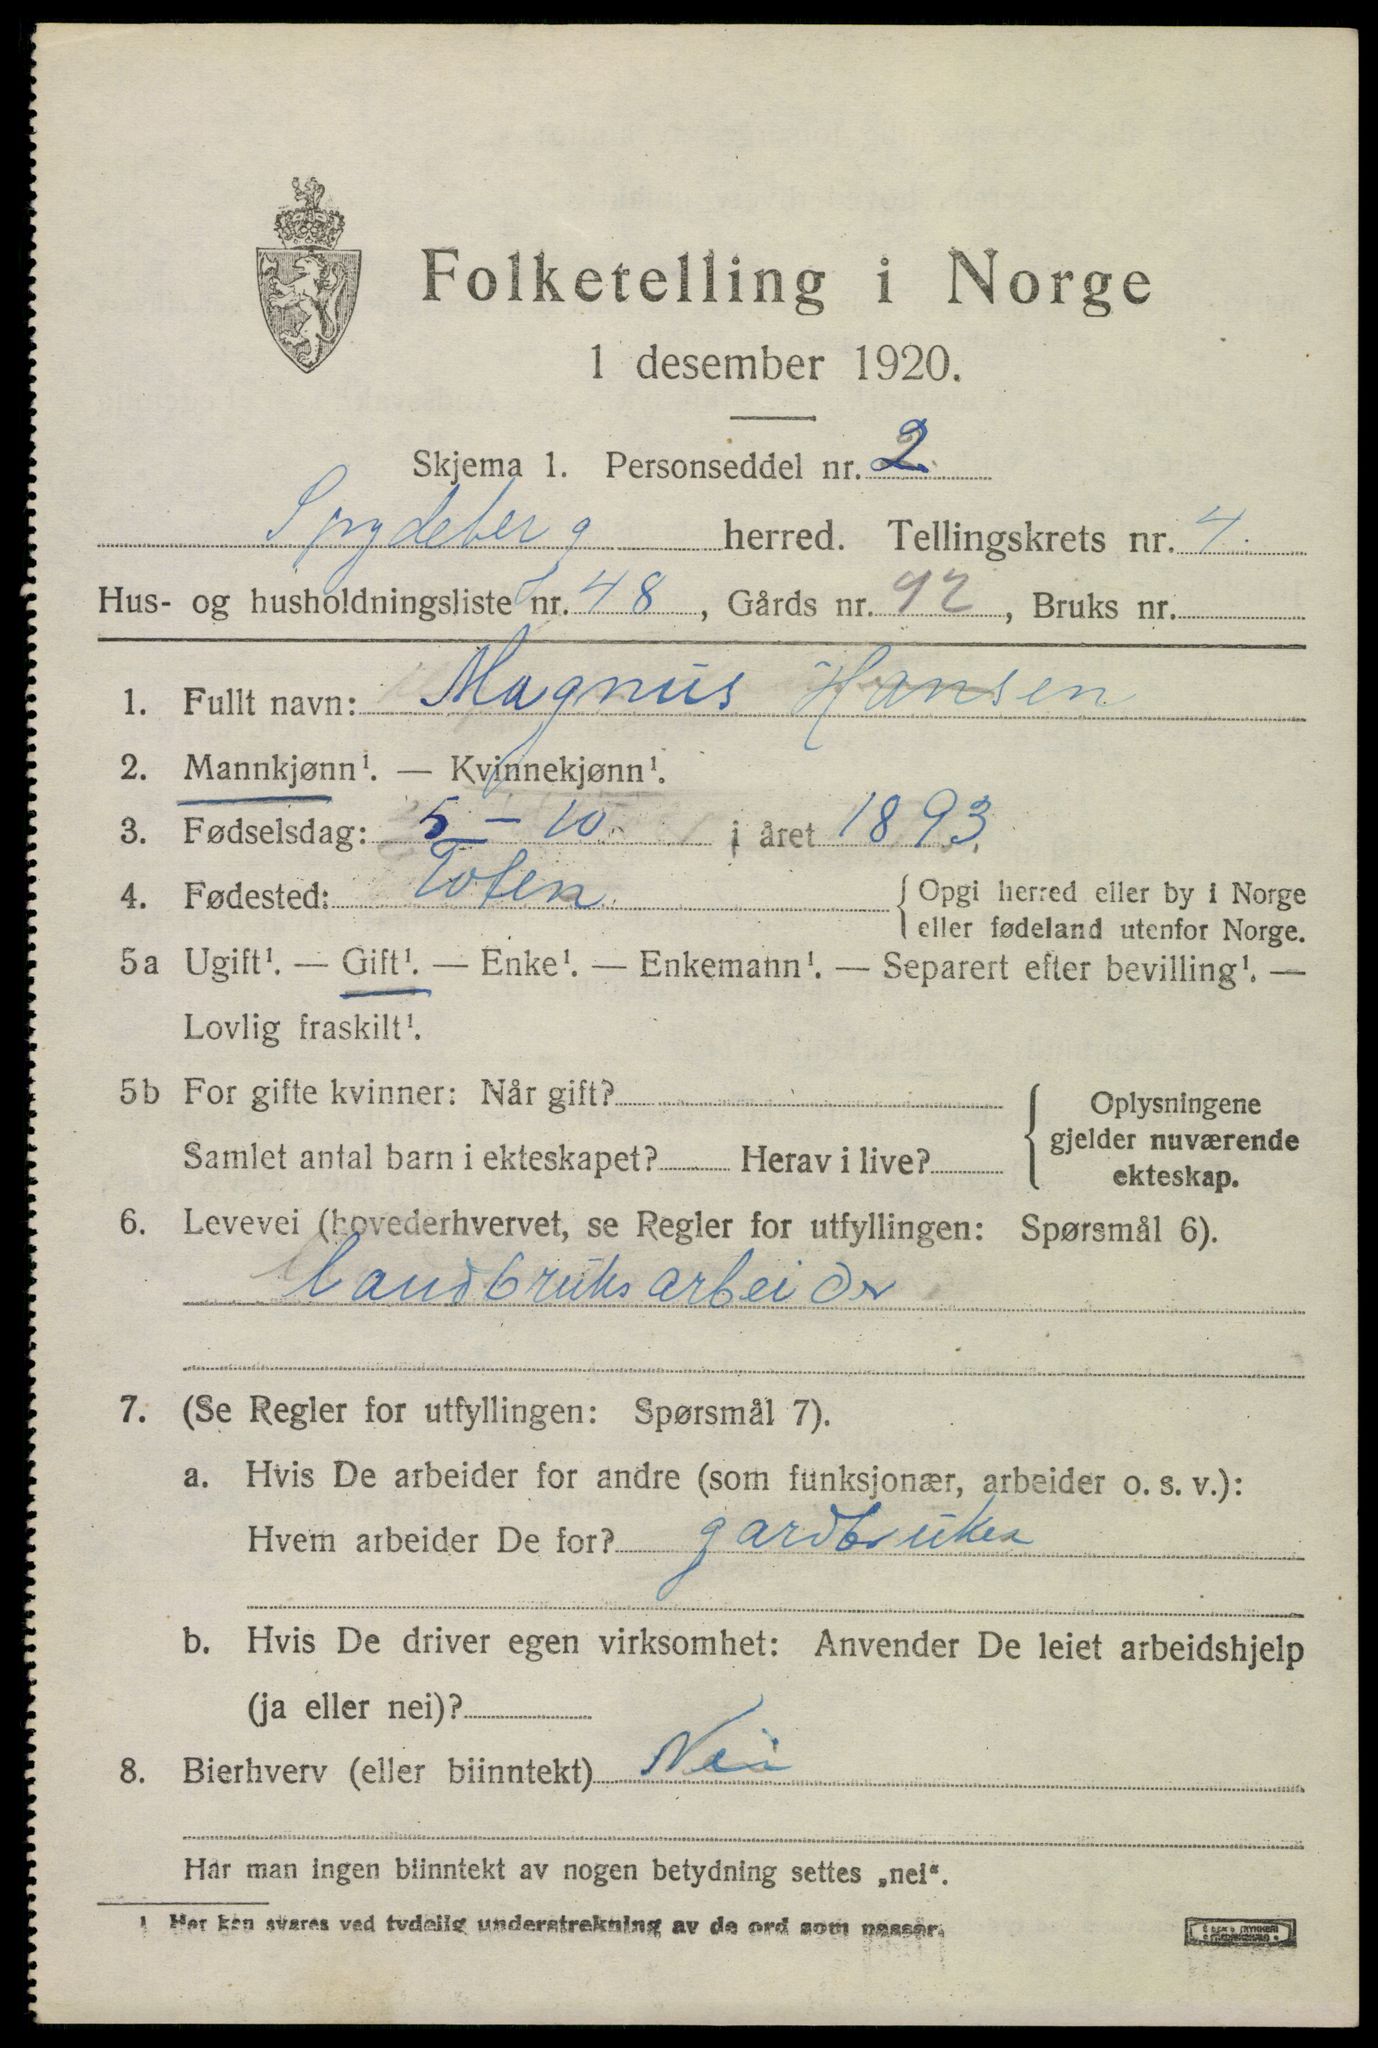 Folketelling i Norge
1 desember 1920.
Skjema 1. Personseddel nr. 2
Spydeberg herred. Tellingskrets nr. 4.
Hus- og husholdningsliste nr. 48, Gårds nr. 92, Bruks nr.
1. Fullt navn: Magnus Hansen
2. Mannkjønn¹. — Kvinnekjønn¹.
3. Fødselsdag: 5 - 10. i året 1893.
4. Fødested: Toten { Opgi herred eller by i Norge
eller fødeland utenfor Norge.
5a Ugift¹. — Gift¹. — Enke¹. — Enkemann¹. — Separert efter bevilling¹. —
Lovlig fraskilt¹.
5b For gifte kvinner: Når gift? { Oplysningene
gjelder nuværende
Samlet antal barn i ekteskapet? Herav i live?
ekteskap.
6. Levevei (hovederhvervet, se Regler for utfyllingen: Spørsmål 6).
Landbruksarbeider
7. (Se Regler for utfyllingen: Spørsmål 7).
a. Hvis De arbeider for andre (som funksjonær, arbeider o. s. v.):
Hvem arbeider De for? gardbruker
b. Hvis De driver egen virksomhet: Anvender De leiet arbeidshjelp
(ja eller nei)?
8. Bierhverv (eller biinntekt) Nei
Har man ingen biinntekt av nogen betydning settes „nei“.
1 Her kan svares ved tydelig understrekning av de ord som passer.